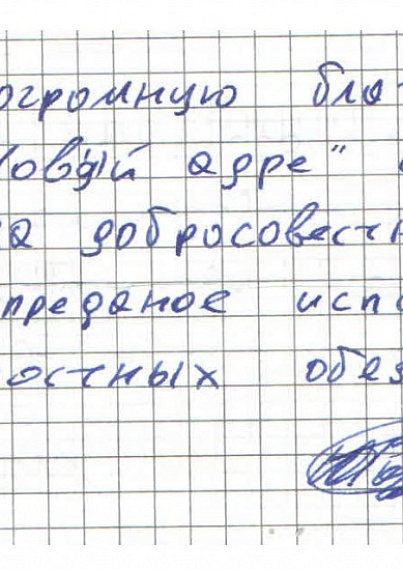 огромную бла
овый адре"
а добросовестн
преданое испо
остных обяз